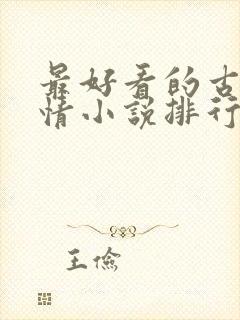 最好看的古
情小说排行
王俭